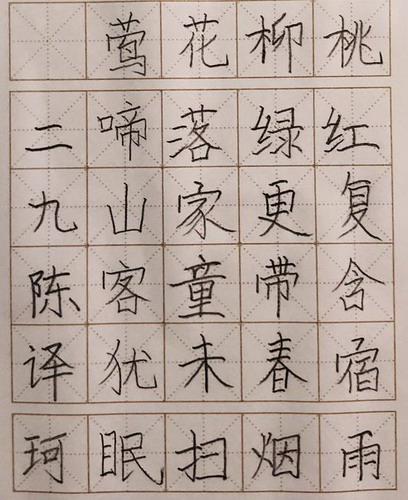 桃红复含宿雨
柳绿更带春烟
花落家童未扫
莺啼山客犹眠
二九陈译珂